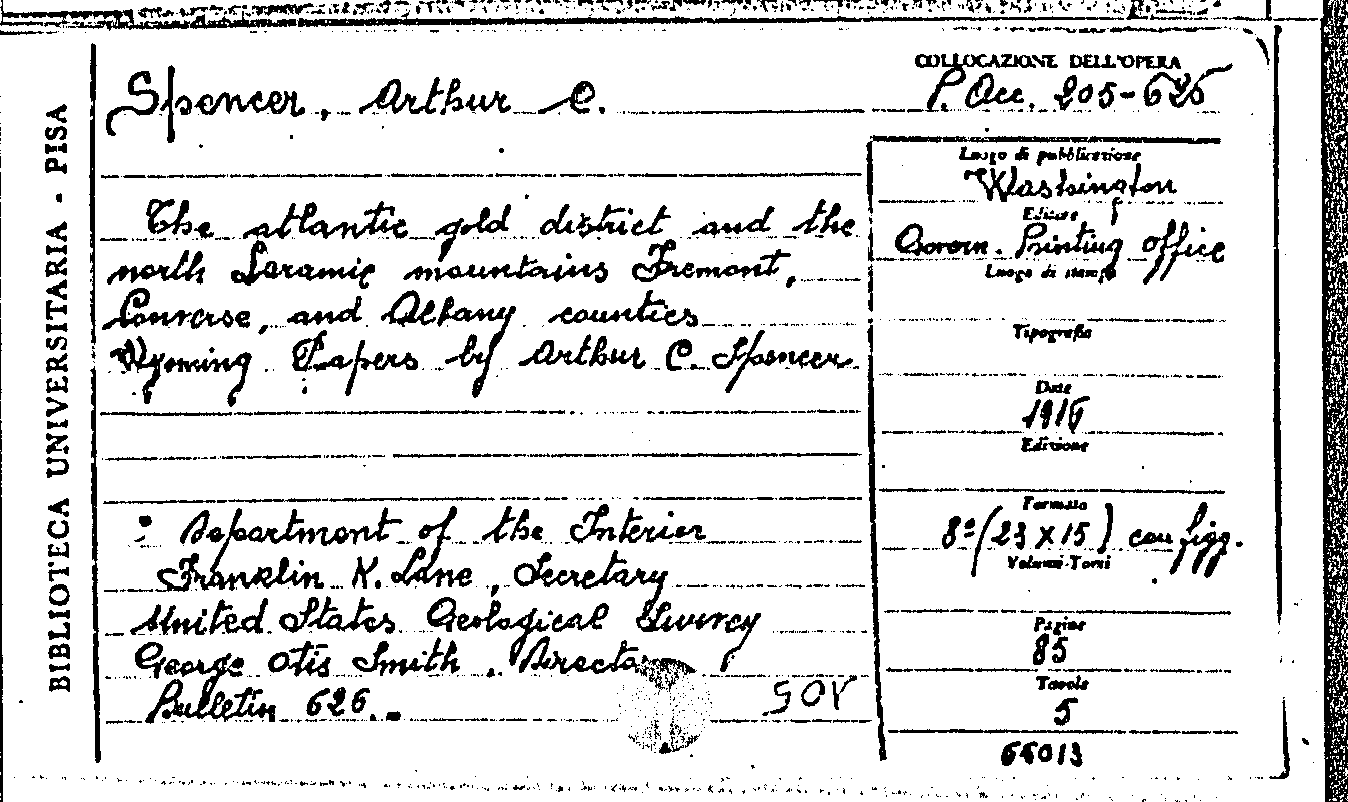 BIBLIOTECA UNIVERSITARIA - PISA
Spencer, Arthur C.
The atlantic gold district and the
north Laramie mountains Fremont,
Converse, and Albany counties
Wyoming Papers by Arthur C. Spencer
: Department of the Interier
Franklin K. Lane, Secretary
United States Geological Survey
George Otis Smith, Director
Bulletin 626.
COLLOCAZIONE DELL'OPERA
P. Acc. 205-626
Luogo di pubblicazione
Washington
Editore
Govern. Printing Office
Luogo di stampa
Tipografia
Date
1916
Edizione
Formato
8º (23 x 15) con figg.
Volumi-Tomi
Pagine
85
Tavole
5
66013